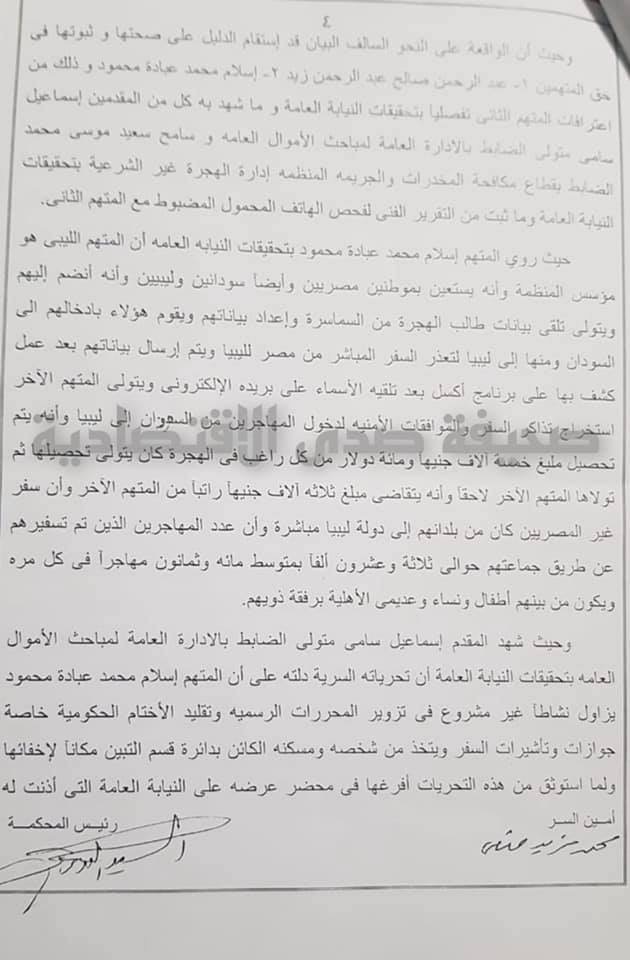 ٤
وحيث أن الواقعة على النحو السالف البيان قد إستقام الدليل على صحتها و ثبوتها فى
حق المتهمين ١- عبد الرحمن صالح عبد الرحمن زيد ٢- إسلام محمد عبادة محمود و ذلك من
اعترافات المتهم الثانى تفصليا بتحقيقات النيابة العامة و ما شهد به كل من المقدمين إسماعيل
سامى متولى الضابط بالادارة العامة لمباحث الأموال العامه و سامح سعيد موسى محمد
الضابط بقطاع مكافحة المخدرات والجريمه المنظمه إدارة الهجرة غير الشرعية بتحقيقات
النيابة العامة وما ثبت من التقرير الفنى لفحص الهاتف المحمول المضبوط مع المتهم الثانى.
حيث روي المتهم إسلام محمد عبادة محمود بتحقيقات النيابه العامه أن المتهم الليبى هو
مؤسس المنظمة وأنه يستعين بموطنين مصريين وأيضاً سودانين وليبيين وأنه أنضم إليهم
ويتولى تلقى بيانات طالب الهجرة من السماسرة وإعداد بياناتهم ويقوم هؤلاء بادخالهم الى
السودان ومنها إلى ليبيا لتعذر السفر المباشر من مصر لليبيا ويتم إرسال بياناتهم بعد عمل
كشف بها على برنامج أكسل بعد تلقيه الأسماء على بريده الإلكترونى ويتولى المتهم الآخر
استخراج تذاكر السفر والموافقات الأمنيه لدخول المهاجرين من السودان إلى ليبيا وأنه يتم
صحيفة صدى الاقتصادية
تحصيل ملبغ خمسة آلاف جنيها ومائة دولار من كل راغب فى الهجرة كان يتولى تحصيلها ثم
تولاها المتهم الآخر لاحقاً وأنه يتقاضى مبلغ ثلاثه آلاف جنيهاً راتباً من المتهم الآخر وأن سفر
غير المصريين كان من بلدانهم إلى دولة ليبيا مباشرة وأن عدد المهاجرين الذين تم تسفيرهم
عن طريق جماعتهم حوالى ثلاثة وعشرون ألفاً بمتوسط مائه وثمانون مهاجراً فى كل مره
ويكون من بينهم أطفال ونساء وعديمى الأهلية برفقة ذويهم.
وحيث شهد المقدم إسماعيل سامى متولى الضابط بالادارة العامة لمباحث الأموال
العامه بتحقيقات النيابة العامة أن تحرياته السرية دلته على أن المتهم إسلام محمد عبادة محمود
يزاول نشاطاً غير مشروع فى تزوير المحررات الرسميه وتقليد الأختام الحكومية خاصة
جوازات وتأشيرات السفر ويتخذ من شخصه ومسكنه الكائن بدائرة قسم التبين مكاناً لإخفائها
ولما استوثق من هذه التحريات أفرغها فى محضر عرضه على النيابة العامة التى أذنت له
أمين السر
رئيس المحكمة